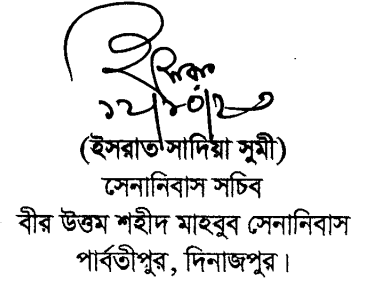 (ইসরাত সাদিয়া সুমী)
সেনানিবাস সচিব
বীর উত্তম শহীদ মাহবুব সেনানিবাস
পার্বতীপুর, দিনাজপুর।